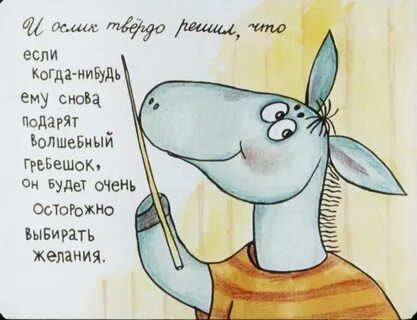 И ослик твёрдо решил, что
если
когда-нибудь
ему снова
подарят
волшебный
гребешок,
он будет очень
осторожно
выбирать
желания.